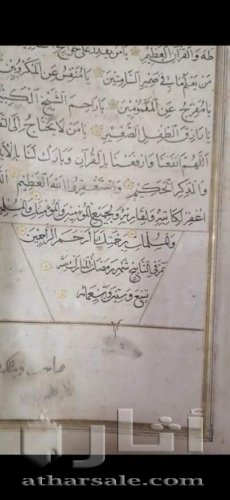 طه والقرآن العظيم يا من يقدر على حوائج
من يعلم ما في ضمير الصامتين يا منفس عن المكروبين
يا مفرج عن المغمومين يا راحم الشيخ الكبير
يا رازق الطفل الصغير يا من لا يحتاج الى
اللهم انفعنا وارفعنا بالقرآن وبارك لنا بالآيا
والذكر الحكيم واستغفروا الله العظيم
اغفر لكاتبه ولقارئه ولجميع المؤمنين والمؤمنات والمسلمين
والمسلمات برحمتك يا ارحم الراحمين
تم في التاريخ شهر رمضان المبارك سنه
تسع وستين وتسعمائه
صاحب
أثار
atharsale.com